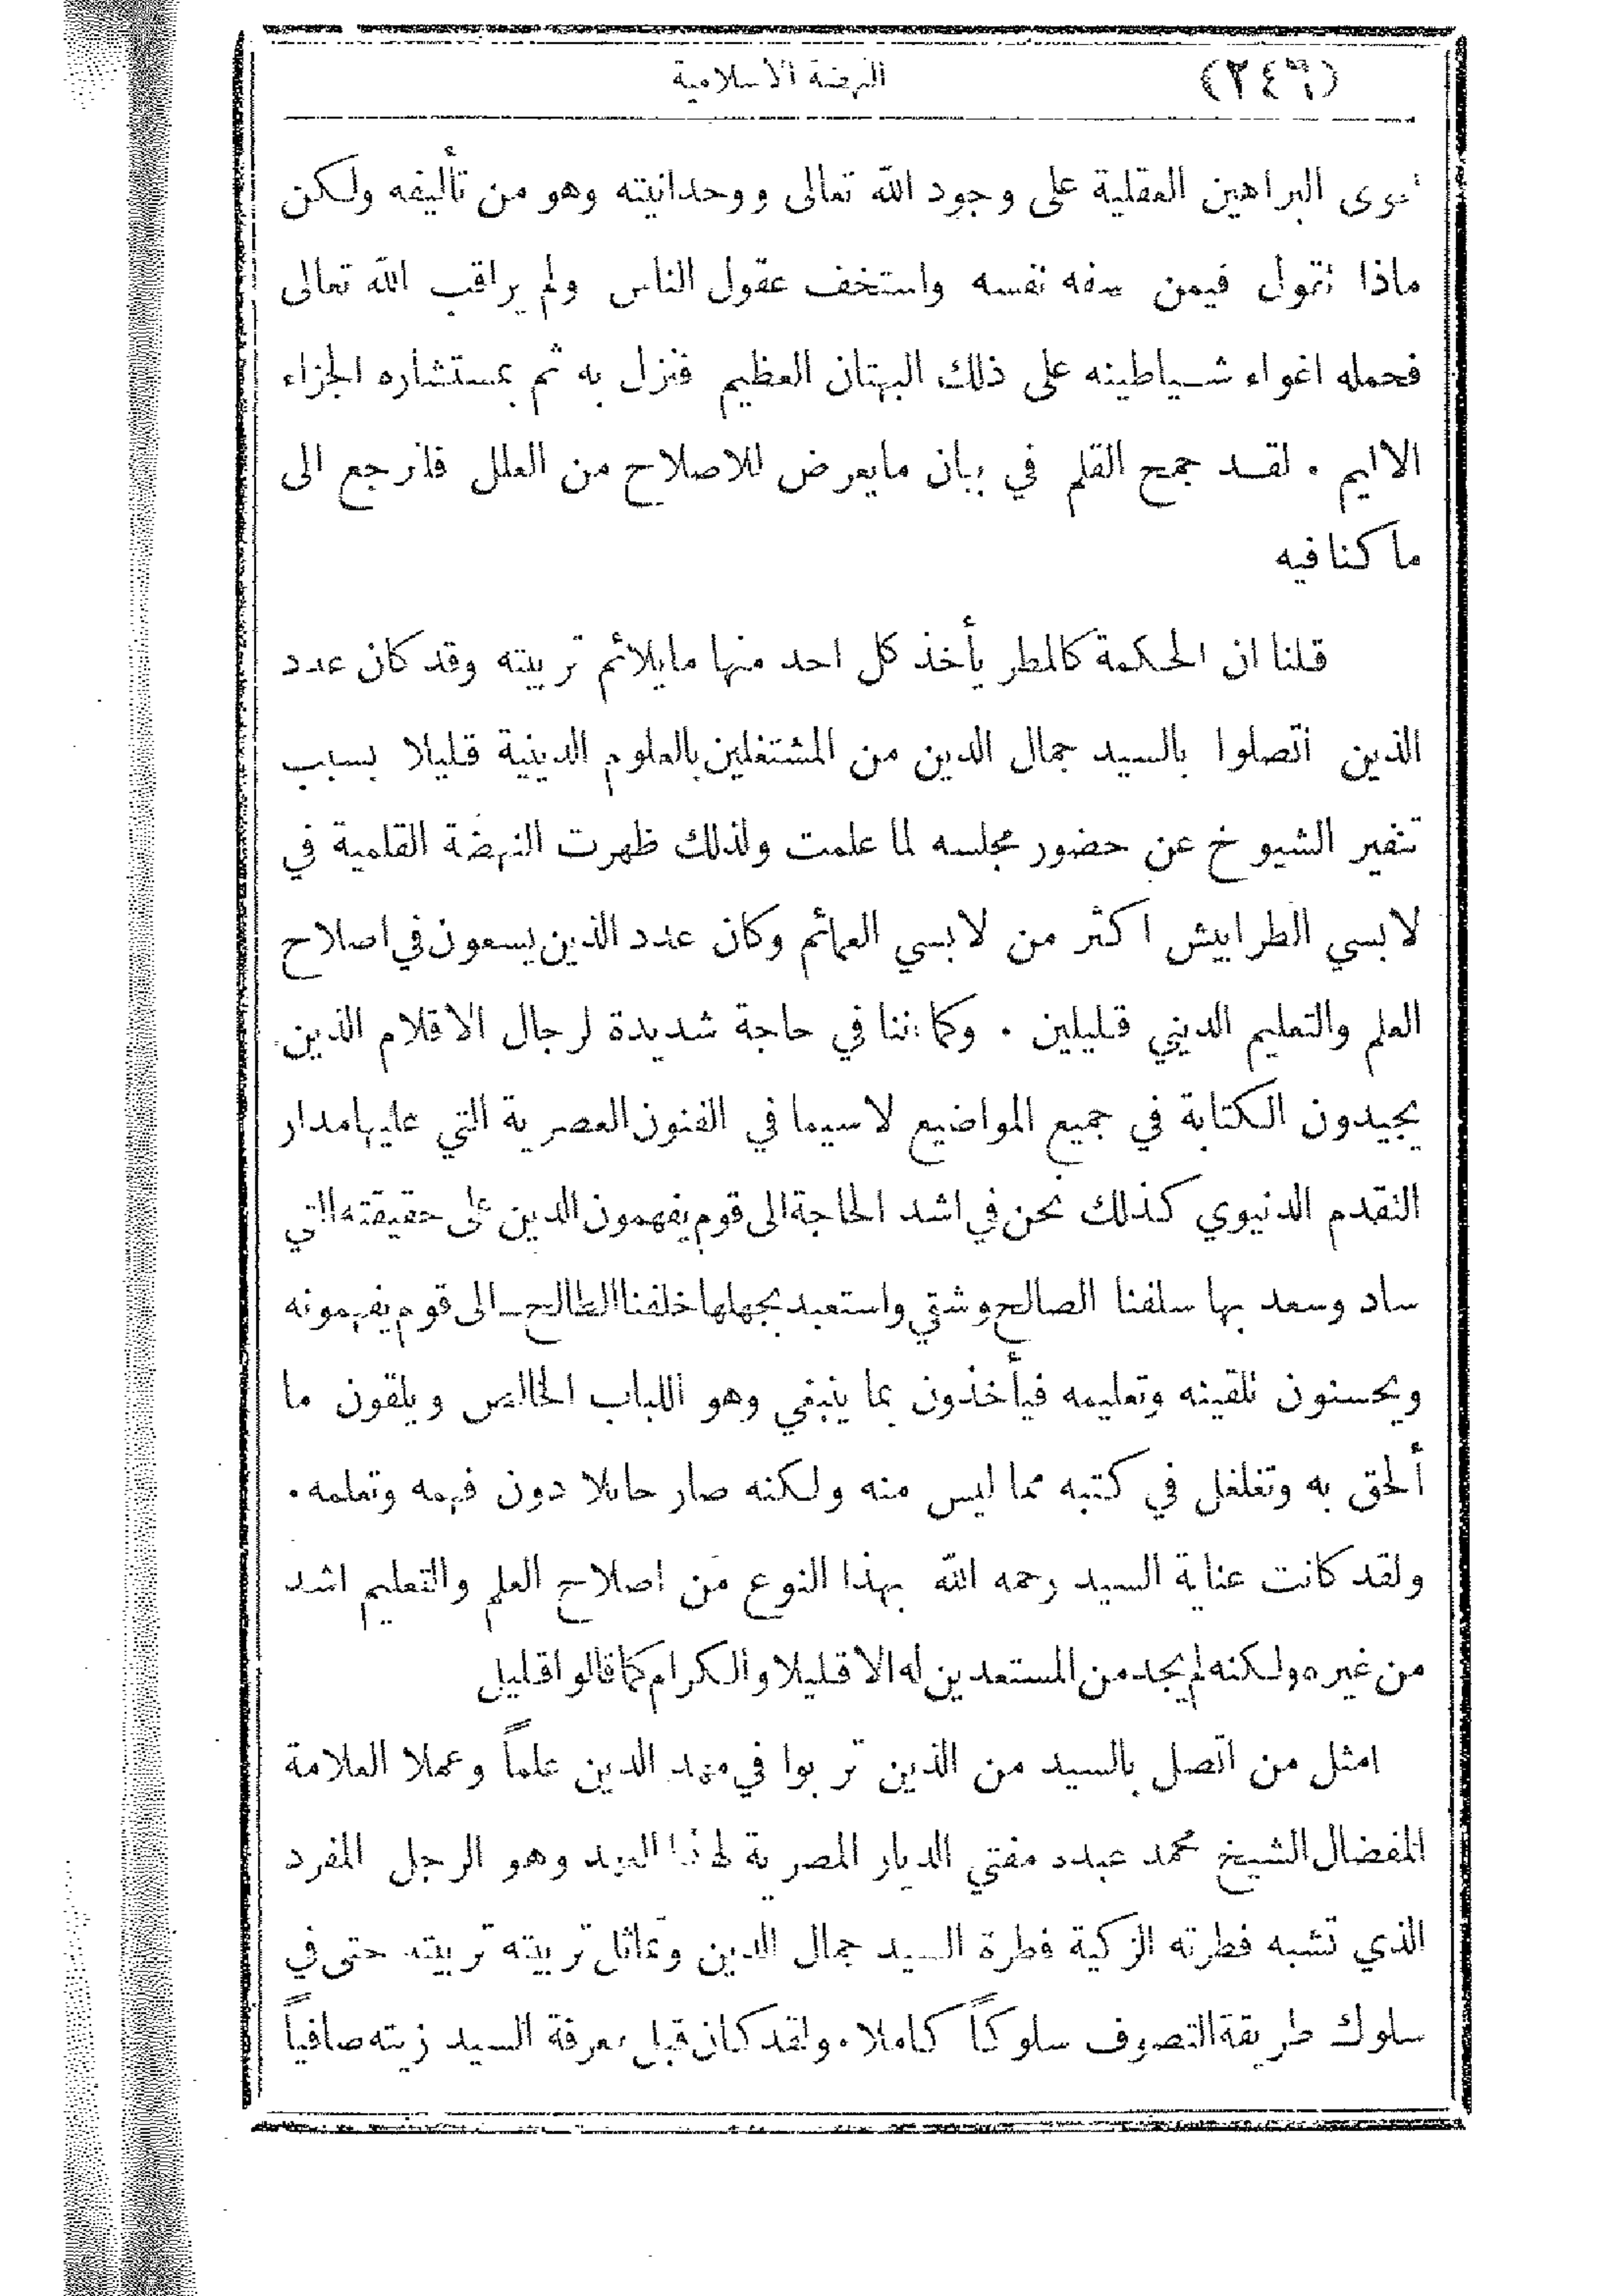 (٢٤٦) النهضة الاسلامية
سوى البراهين العقلية على وجود الله تعالى ووحدانيته وهو من تأليفه ولكن
ماذا نقول فيمن سفه نفسه واستخف عقول الناس ولم يراقب الله تعالى
فحمله اغواء شياطينه على ذلك البهتان العظيم فنزل به ثم بمستشاره الجزاء
الاليم . لقد جمح القلم في بيان مايعرض للاصلاح من العلل فلنرجع الى
ما كنا فيه
قلنا ان الحكمة كالمطر يأخذ كل احد منها مايلائم تربيته وقد كان عدد
الذين اتصلوا بالسيد جمال الدين من المشتغلين بالعلوم الدينية قليلا بسبب
تنفير الشيوخ عن حضور مجلسه لما علمت ولذلك ظهرت النهضة القلمية في
لابسي الطرابيش اكثر من لابسي العمائم وكان عدد الذين يسعون في اصلاح
العلم والتعليم الديني قليلين . وكما اننا في حاجة شديدة لرجال الاقلام الذين
يجيدون الكتابة في جميع المواضيع لاسيما في الفنون العصرية التي عليها مدار
التقدم الدنيوي كذلك نحن في اشد الحاجة الى قوم يفهمون الدين على حقيقته التي
ساد وسعد بها سلفنا الصالح وشقي واستعبد بجهلها خلفنا الطالح ــ الى قوم يفهمونه
ويحسنون تلقينه وتعليمه فيأخذون بما ينبغي وهو اللباب الخالص ويلقون ما
ألحق به وتغلغل في كتبه مما ليس منه ولكنه صار حايلا دون فهمه وتعلمه .
ولقد كانت عناية السيد رحمه الله بهذا النوع من اصلاح العلم والتعليم اشد
من غيره ولكنه لم يجد من المستعدين له الا قليلا والكرام كما قالوا قليل
امثل من اتصل بالسيد من الذين تربوا في مهد الدين علماً وعملا العلامة
المفضال الشيخ محمد عبده مفتي الديار المصرية لهذا العهد وهو الرجل المفرد
الذي تشبه فطرته الزكية فطرة السيد جمال الدين وتماثل تربيته تربيته حتى في
سلوك طريقة التصوف سلوكاً كاملا . ولقد كان قبل معرفة السيد زيته صافياً